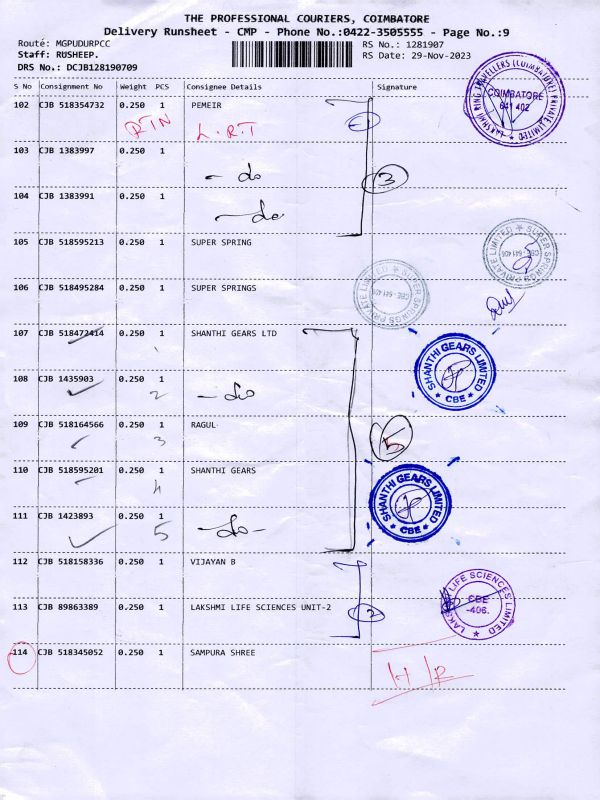 THE PROFESSIONAL COURIERS, COIMBATORE
Delivery Runsheet - CMP - Phone No.:0422-3505555 - Page No.:9
Route: MGPUDURPCC
Staff: RUSHEEP.
DRS No.: DCJB128190709
RS No.: 1281907
RS Date: 29-Nov-2023
S No Consignment No Weight PCS Consignee Details Signature
102 CJB 518354732 0.250 1 PEMEIR
RTN L.R.T
103 CJB 1383997 0.250 1
- do
3
104 CJB 1383991 0.250 1
- do
LAKSHMI RING TRAVELLERS (COIMBATORE) PRIVATE LIMITED
COIMBATORE
641 402
105 CJB 518595213 0.250 1 SUPER SPRING
SUPER SPRINGS PRIVATE LIMITED
CBE-641 406
106 CJB 518495284 0.250 1 SUPER SPRINGS
SUPER SPRINGS PRIVATE LIMITED
CBE-641 406
107 CJB 518472414 0.250 1 SHANTHI GEARS LTD
1
SHANTHI GEARS LIMITED
CBE
108 CJB 1435903 0.250 1
2 - do
109 CJB 518164566 0.250 1 RAGUL
3
5
110 CJB 518595201 0.250 1 SHANTHI GEARS
4
SHANTHI GEARS LIMITED
CBE
111 CJB 1423893 0.250 1
5 - do -
112 CJB 518158336 0.250 1 VIJAYAN B
113 CJB 89863389 0.250 1 LAKSHMI LIFE SCIENCES UNIT-2
2
LIFE SCIENCES LIMITED
CBE
-406.
114 CJB 518345052 0.250 1 SAMPURA SHREE